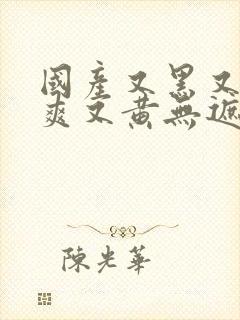 國產又黑又
爽又黃無遮
陳光華